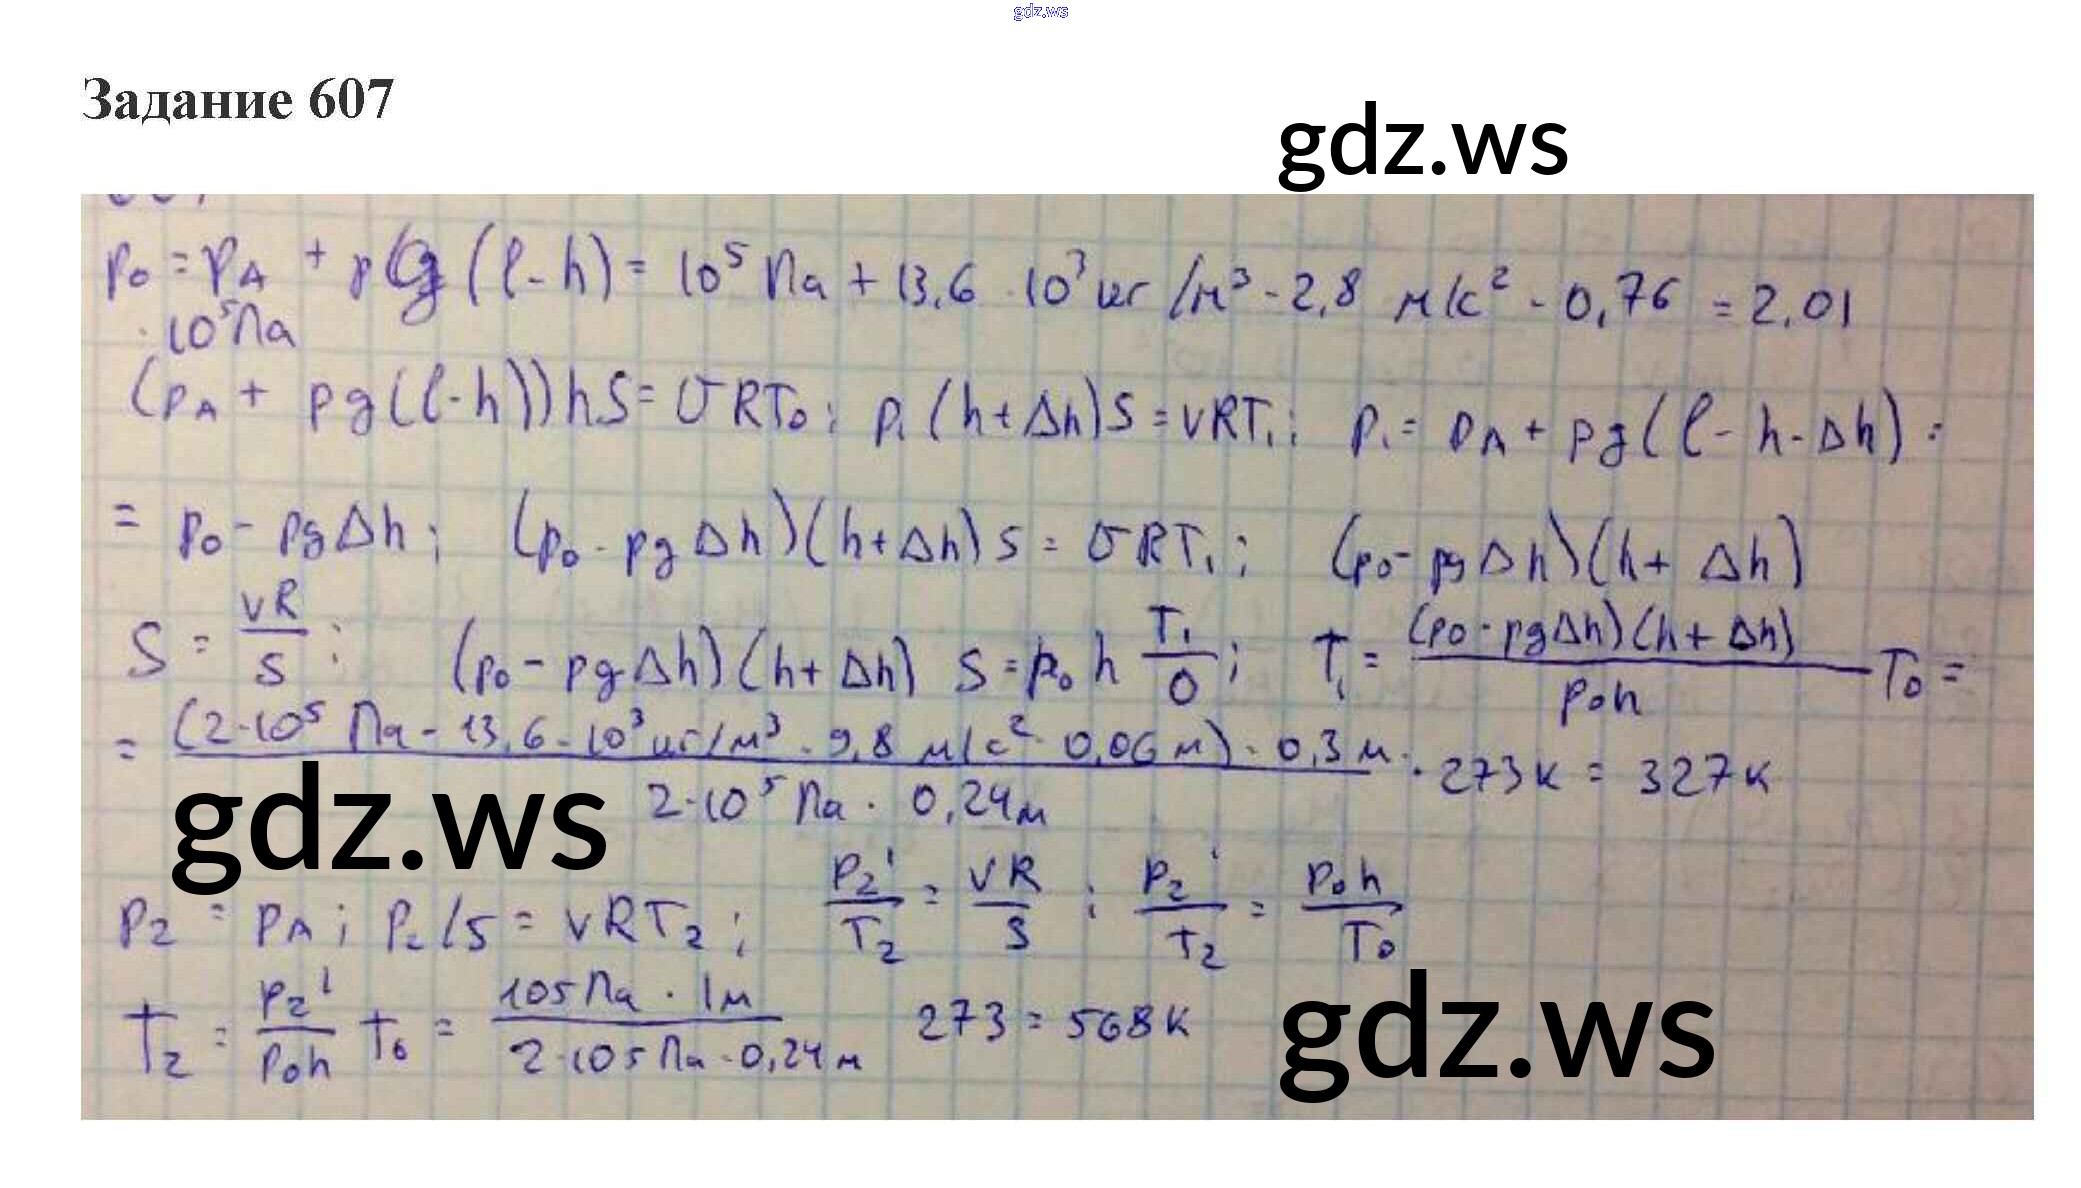 gdz.ws
Задание 607
gdz.ws
p₀ = p_A + ρg(l-h) = 10⁵ Па + 13,6 · 10³ кг/м³ - 2,8 м/с² - 0,76 = 2,01
· 10⁵Па
(p_A + ρg(l-h))hS = υRT₀; p₁(h+Δh)S = νRT₁; p₁ = p_A + ρg(l-h-Δh) =
= p₀ - ρgΔh; (p₀ - ρgΔh)(h+Δh)S = υRT₁; (p₀ - ρgΔh)(h+Δh)
S = νR/S; (p₀ - ρgΔh)(h+Δh) S = p₀h T₁/0; T₁ = (p₀ - ρgΔh)(h+Δh)/p₀h T₀ =
= (2·10⁵ Па - 13,6 - 10³кг/м³ · 9,8 м/с² · 0,06м) · 0,3м / 2·10⁵Па · 0,24м · 273К = 327К
gdz.ws
p₂ = p_A; p₂lS = νRT₂; p₂l/T₂ = νR/S; p₂l/T₂ = p₀h/T₀
T₂ = p₂l/p₀h T₀ = 105Па · 1м / 2·105Па - 0,24м 273 = 568К
gdz.ws